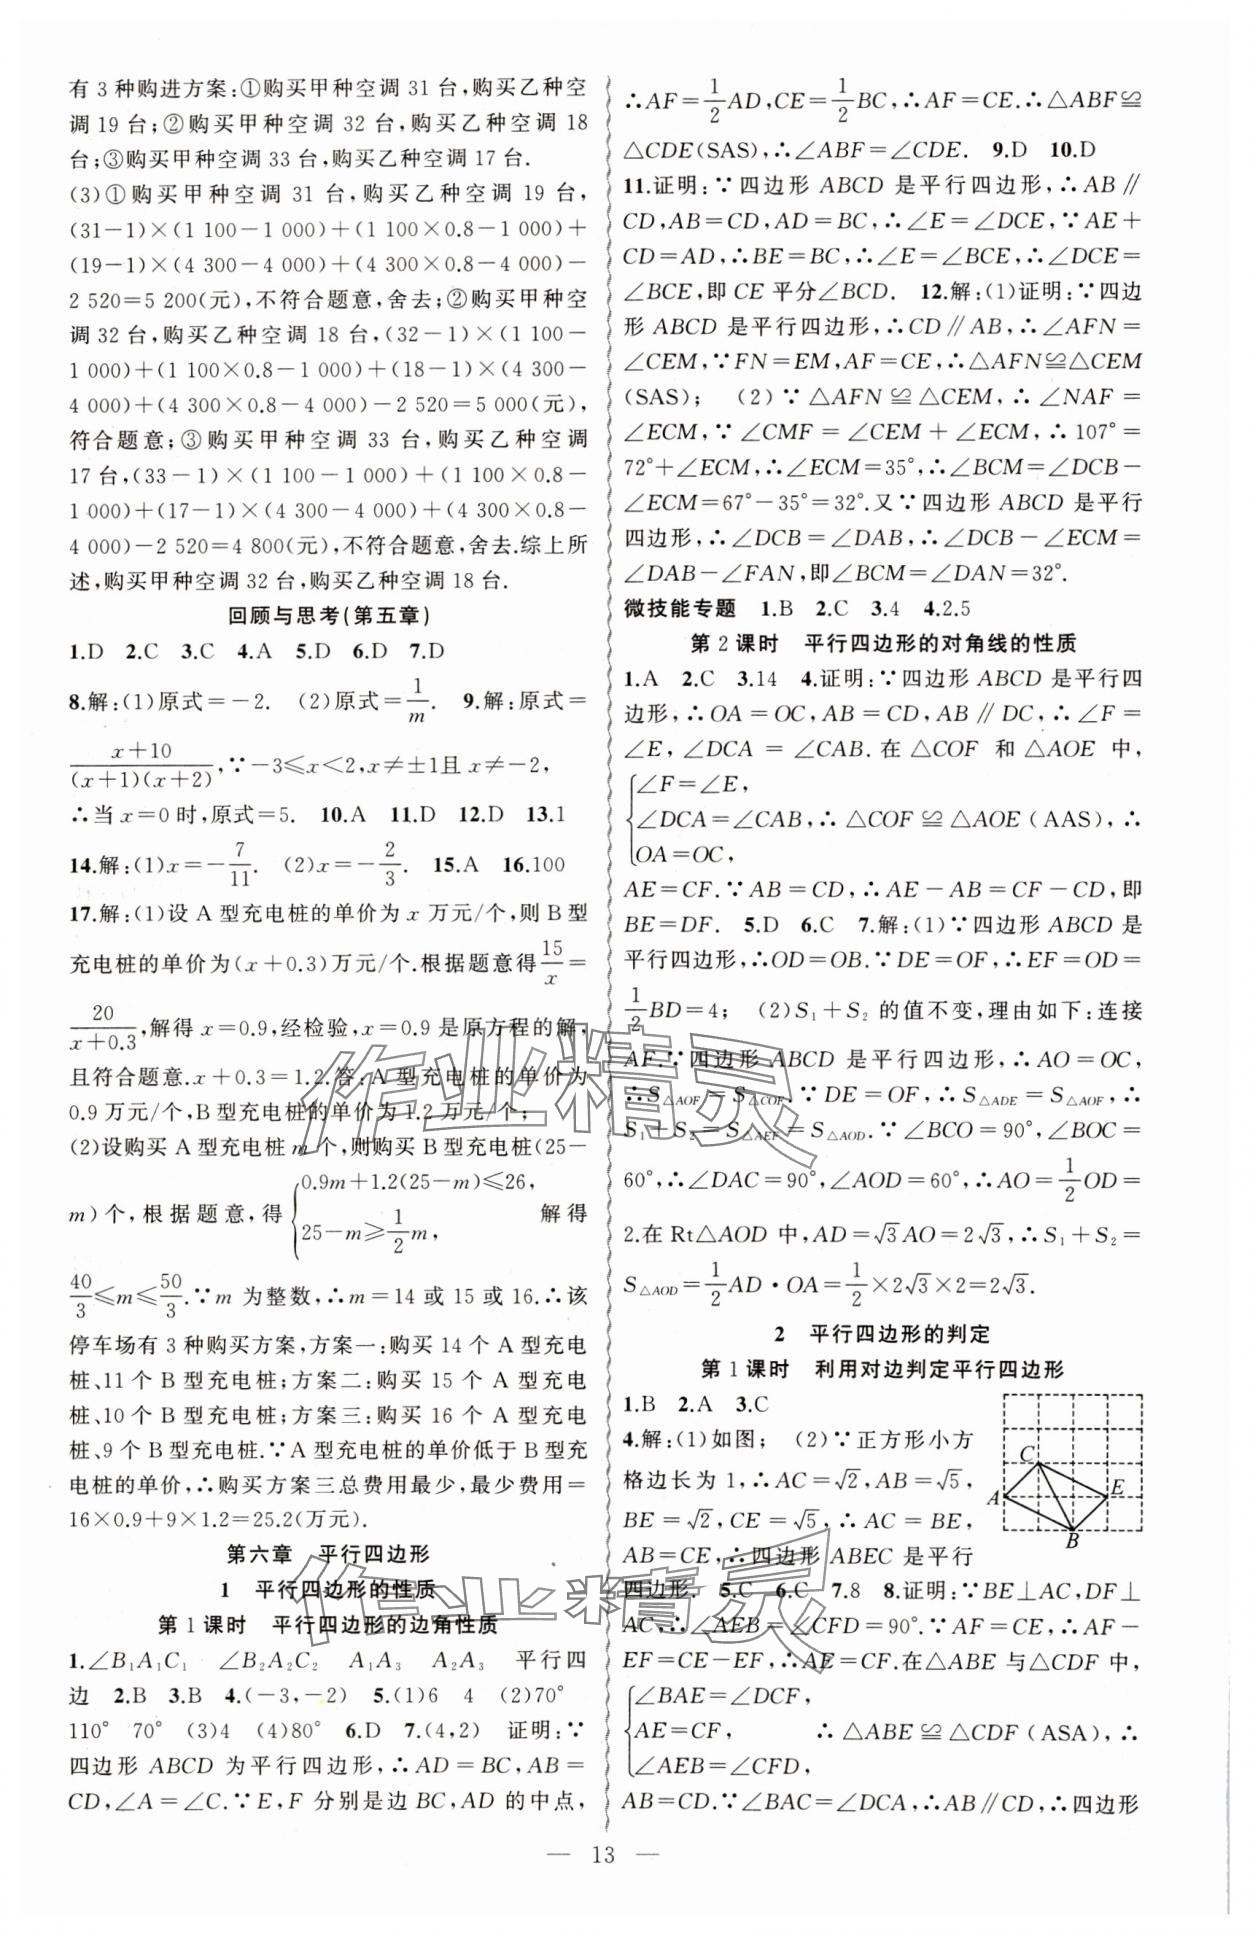 有 3 种购进方案:①购买甲种空调 31 台,购买乙种空
调 19 台;②购买甲种空调 32 台,购买乙种空调 18
台;③购买甲种空调 33 台,购买乙种空调 17 台.
(3)①购买甲种空调 31 台,购买乙种空调 19 台,
(31-1)×(1 100-1 000)+(1 100×0.8-1 000)+
(19-1)×(4 300-4 000)+(4 300×0.8-4 000)-
2 520=5 200(元),不符合题意,舍去;②购买甲种空
调 32 台,购买乙种空调 18 台,(32-1)×(1 100-
1 000)+(1 100×0.8-1 000)+(18-1)×(4 300-
4 000)+(4 300×0.8-4 000)-2 520=5 000(元),
符合题意;③购买甲种空调 33 台,购买乙种空调
17 台,(33-1)×(1 100-1 000)+(1 100×0.8-
1 000)+(17-1)×(4 300-4 000)+(4 300×0.8-
4 000)-2 520=4 800(元),不符合题意,舍去.综上所
述,购买甲种空调 32 台,购买乙种空调 18 台.
回顾与思考(第五章)
1.D 2.C 3.C 4.A 5.D 6.D 7.D
8.解:(1)原式=-2. (2)原式=1/m. 9.解:原式=
(x+10)/((x+1)(x+2)),∵-3≤x<2,x≠±1且 x≠-2,
∴当 x=0 时,原式=5. 10.A 11.D 12.D 13.1
14.解:(1)x=-7/11. (2)x=-2/3. 15.A 16.100
17.解:(1)设 A 型充电桩的单价为 x 万元/个,则 B 型
充电桩的单价为(x+0.3)万元/个.根据题意得15/x=
20/(x+0.3),解得 x=0.9,经检验,x=0.9 是原方程的解,
且符合题意.x+0.3=1.2.答:A 型充电桩的单价为
0.9 万元/个,B 型充电桩的单价为1.2 万元/个;
(2)设购买 A 型充电桩 m 个,则购买 B 型充电桩(25-
m)个,根据题意,得{0.9m+1.2(25-m)≤26, 25-m≥1/2m, 解得
40/3≤m≤50/3.∵m 为整数,∴m=14 或 15 或 16.∴该
停车场有 3 种购买方案,方案一:购买 14 个 A 型充电
桩、11 个 B 型充电桩;方案二:购买 15 个 A 型充电
桩、10 个 B 型充电桩;方案三:购买 16 个 A 型充电
桩、9 个 B 型充电桩.∵A 型充电桩的单价低于 B 型充
电桩的单价,∴购买方案三总费用最少,最少费用=
16×0.9+9×1.2=25.2(万元).
第六章 平行四边形
1 平行四边形的性质
第 1 课时 平行四边形的边角性质
1.∠B₁A₁C₁ ∠B₂A₂C₂ A₁A₃ A₂A₃ 平行四
边 2.B 3.B 4.(-3,-2) 5.(1)6 4 (2)70°
110° 70° (3)4 (4)80° 6.D 7.(4,2) 证明:∵
四边形 ABCD 为平行四边形,∴AD=BC,AB=
CD,∠A=∠C.∵E,F 分别是边 BC,AD 的中点,
∴AF=1/2AD,CE=1/2BC,∴AF=CE.∴△ABF≌
△CDE(SAS),∴∠ABF=∠CDE. 9.D 10.D
11.证明:∵四边形 ABCD 是平行四边形,∴AB∥
CD,AB=CD,AD=BC,∴∠E=∠DCE,∵AE+
CD=AD,∴BE=BC,∴∠E=∠BCE,∴∠DCE=
∠BCE,即 CE 平分∠BCD. 12.解:(1)证明:∵四边
形 ABCD 是平行四边形,∴CD∥AB,∴∠AFN=
∠CEM,∵FN=EM,AF=CE,∴△AFN≌△CEM
(SAS); (2)∵△AFN≌△CEM,∴∠NAF=
∠ECM,∵∠CMF=∠CEM+∠ECM,∴107°=
72°+∠ECM,∴∠ECM=35°,∴∠BCM=∠DCB-
∠ECM=67°-35°=32°.又∵四边形 ABCD 是平行
四边形,∴∠DCB=∠DAB,∴∠DCB-∠ECM=
∠DAB-∠FAN,即∠BCM=∠DAN=32°.
微技能专题 1.B 2.C 3.4 4.2.5
第 2 课时 平行四边形的对角线的性质
1.A 2.C 3.14 4.证明:∵四边形 ABCD 是平行四
边形,∴OA=OC,AB=CD,AB∥DC,∴∠F=
∠E,∠DCA=∠CAB.在△COF 和△AOE 中,
∠F=∠E,
∠DCA=∠CAB,∴△COF≌△AOE(AAS),∴
OA=OC,
AE=CF.∵AB=CD,∴AE-AB=CF-CD,即
BE=DF. 5.D 6.C 7.解:(1)∵四边形 ABCD 是
平行四边形,∴OD=OB.∵DE=OF,∴EF=OD=
1/2BD=4; (2)S₁+S₂ 的值不变,理由如下:连接
AF.∵四边形 ABCD 是平行四边形,∴AO=OC,
∴S△AOF=S△COF,∵DE=OF,∴S△ADE=S△AOF,∴
S₁+S₂=S△AEF=S△AOD.∵∠BCO=90°,∠BOC=
60°,∴∠DAC=90°,∠AOD=60°,∴AO=1/2OD=
2.在 Rt△AOD 中,AD=√3AO=2√3,∴S₁+S₂=
S△AOD=1/2AD·OA=1/2×2√3×2=2√3.
2 平行四边形的判定
第 1 课时 利用对边判定平行四边形
1.B 2.A 3.C
4.解:(1)如图; (2)∵正方形小方
格边长为 1,∴AC=√2,AB=√5,
BE=√2,CE=√5,∴AC=BE,
AB=CE,∴四边形 ABEC 是平行
C
A
E
B
四边形. 5.C 6.C 7.8 8.证明:∵BE⊥AC,DF⊥
AC,∴∠AEB=∠CFD=90°.∵AF=CE,∴AF-
EF=CE-EF,∴AE=CF.在△ABE 与△CDF 中,
∠BAE=∠DCF,
AE=CF, ∴△ABE≌△CDF(ASA),∴
∠AEB=∠CFD,
AB=CD.∵∠BAC=∠DCA,∴AB∥CD,∴四边形
— 13 —
作业精灵
作业精灵